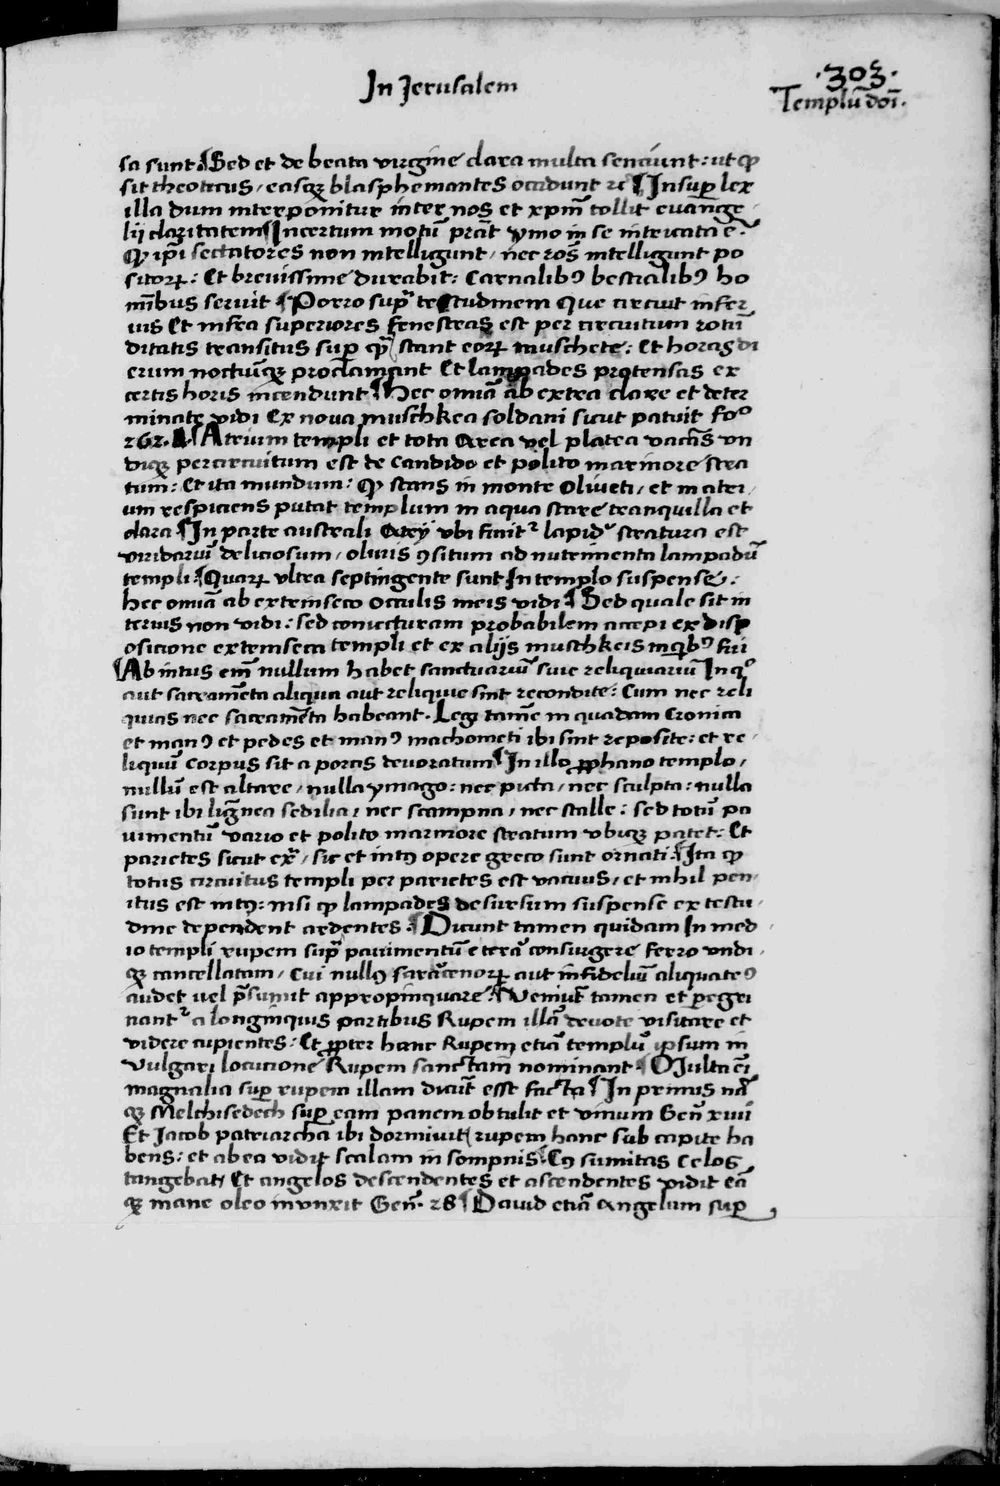 In Jerusalem
·303·
Templū doī.
sa sunt ¶ Sed et de beata virgine clara multa senciunt : ut ꝙ
sit theotecus / easqꝫ blasphemantes occidunt ꝛc ¶ Insup̱ lex
illa dum interponitur inter nos et xp̄m tollit euange
lij claritatem ¶ Incertum motū p̄rāt ymo in se intricata ē.
Qꝫ ip̄i sectatores non intelligunt / nec eos intelligunt po
sitorꝝ : Et breuissime durabit : Carnalibꝰ bestialibꝰ ho
mībus seruit ¶ Porro sup̱ᵃ testudinem Que circuit infer
ius Et infra superiores fenestras est per circuitum rotū
ditatis transitus sup̱ qᵃ stant eorꝝ muschete : Et horas di
erum noctiūqꝫ proclamant Et lampades protensas ex
certis horis incendunt ¶ Hec om̄ia ab extra clare et deter
minate vidi Ex noua muschkea soldani sicut patuit foᵒ
262. ¶ Atrium templi et tota Area vel platea vacās vn
diqꝫ per circuitum est de Candido et polito marmore stra
tum : Et ita mundum : Qꝙ stans in monte Oliueti / et in atri
um respiciens putat templum in aqua stare tranquilla et
clara ¶ In parte australi Arey vbi finitʳ lapidū stratura est
viridariū deliciosum / oliuis ꝯsitum ad nutrimenta lampadū
templi ¶ Quarꝝ vltra septingente sunt In templo suspense :
hec om̄ia ab extrinseco occulis meis vidi ¶ Sed quale sit in
terius non vidi : sed coniecturam probabilem accepi ex disp
osicione extrinseca templi et ex alijs muschkeis in qͥbꝰ fui
¶ Ab intus em̄ nullum habet sanctuariū siue reliquiariū In qͦ
aut sacramēta aliqua aut reliquie sint recondite : Cum nec reli
quias nec sacramēta habeant . Legi tamē in quadam Cronica
et manꝰ et pedes et manꝰ machometi ibi sint reposite : et re
liquū Corpus sit a porcis deuoratum ¶ In illo ꝓphano templo /
nullū est altare / nulla ymago : nec picta / nec sculpta : nulla
sunt ibi lignea sedilia / nec scampna / nec stalle : sed totū pa
uimentū vario et polito marmore stratum vbiqꝫ patet : Et
parietes sicut exᵃ / sic et intꝰ opere greco sunt ornati ¶ Ita ꝙ
totus circuitus templi per parietes est vacuus / et nihil pen
itus est intꝰ : nisi ꝙ lampades desursum suspense ex testu
dine dependent ardentes . ¶ Dicunt tamen quidam In med
io templi rupem sup̱ᵃ pauimentū e terā consurgere ferro vndi
qꝫ cancellatam / Cui nullꝰ saracenorꝝ aut infideliū aliquatenꝰ
audet uel p̄sumit appropinquare . ¶ Veniūt tamen et p̱egri
nantʳ a longinquis partibus Rupem illā deuote visitare et
videre cupientes : Et ꝓpter hanc Rupem etiā templū ipsum in
vulgari locucione Rupem sanctam nominant ¶ Multa ei
magnalia sup̱ rupem illam dicūt esse facta ¶ In primis nā
qꝫ Melchisedech sup̱ eam panem obtulit et vinum Geñ xiiii
Et Jacob patriarcha ibi dormiuit rupem hanc sub capite ha
bens : et ab ea vidit scalam in sompnis Cꝰ sumitas Celos
tangebat / Et angelos descendentes et ascendentes vidit eā
qꝫ mane oleo invnxit Geñ. 28 ¶ Dauid etiā Angelum sup̱